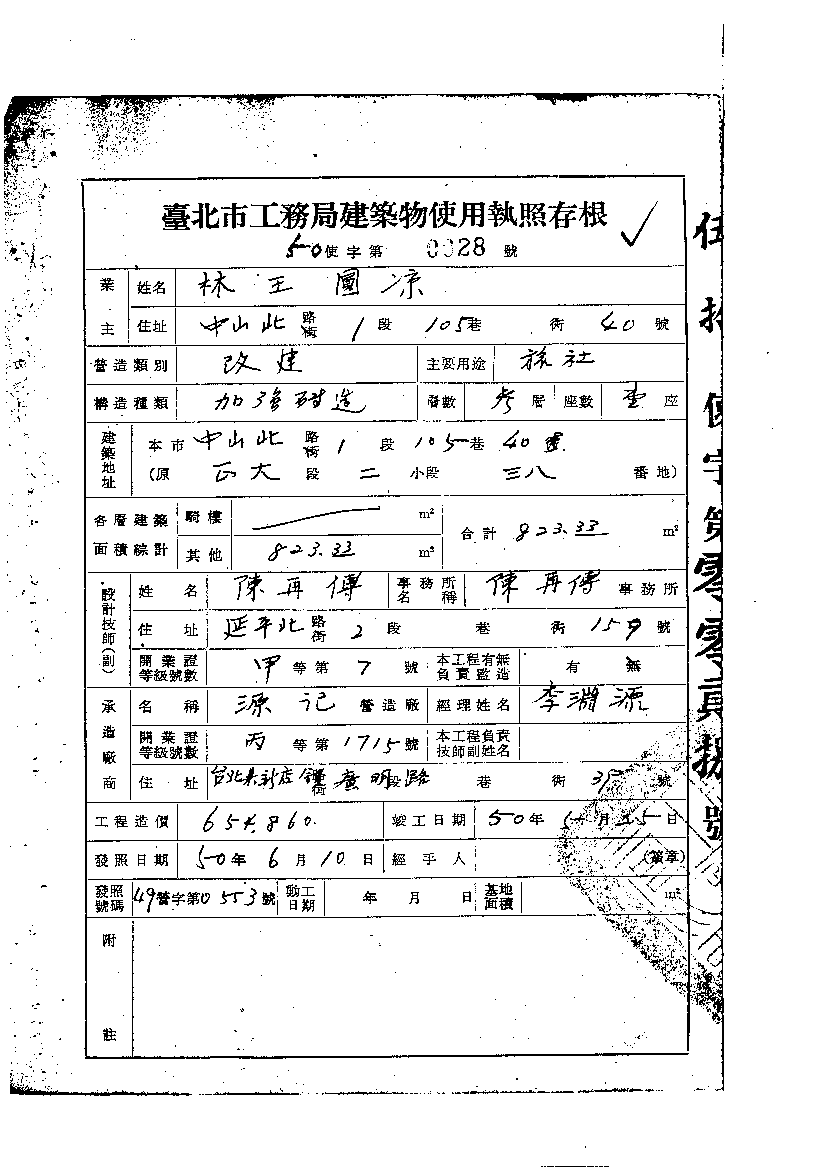 臺北市工務局建築物使用執照存根
50使字第 0028 號
業主 姓名 林王圖涼
住址 中山北路街 1 段 105巷 街 40 號
營造類別 改建 主要用途 旅社
構造種類 加強磚造 層數 參層 座數 壹座
建築地址 本市 中山北路街 1 段 105巷 40號
(原 正大 段 二 小段 三八 番地)
各層建築面積綜計 騎樓 m² 合計 823.33 m²
其他 823.33 m²
設計技師(副) 姓名 陳再傳 事務所名稱 陳再傳 事務所
住址 延平北路街 2 段 巷 街 159 號
開業證等級號數 甲 等第 7 號 本工程有無負責監造 有 無
承造廠商 名稱 源記 營造廠 經理姓名 李淵源
開業證等級號數 丙 等第 1715 號 本工程負責技師副姓名
住址 台北縣新店鎮 街 明 段 路 巷 街 號
工程造價 654,860. 竣工日期 50年 月 日
發照日期 50年 6月 10日 經手人 (簽章)
發照號碼 49營字第0553號 動工日期 年 月 日 基地面積 m²
附註
伍拾使字第零零貳捌號